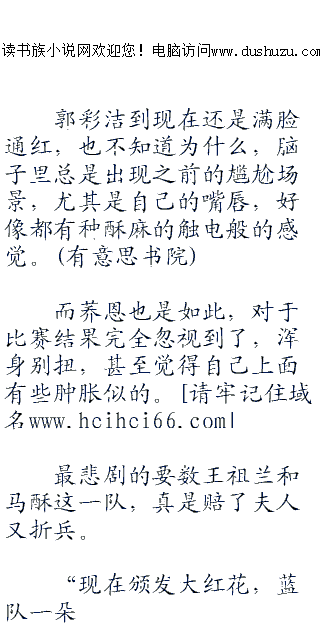 读书族小说网欢迎您！电脑访问www.dushuzu.com
郭彩洁到现在还是满脸
通红，也不知道为什么，脑
子里总是出现之前的尴尬场
景，尤其是自己的嘴唇，好
像都有种酥麻的触电般的感
觉。(有意思书院)
而荞恩也是如此，对于
比赛结果完全忽视到了，浑
身别扭，甚至觉得自己上面
有些肿胀似的。[请牢记住域
名www.hcihci66.com|
最悲剧的要数王祖兰和
马酥这一队，真是赔了夫人
又折兵。
“现在颁发大红花，蓝
队一朵